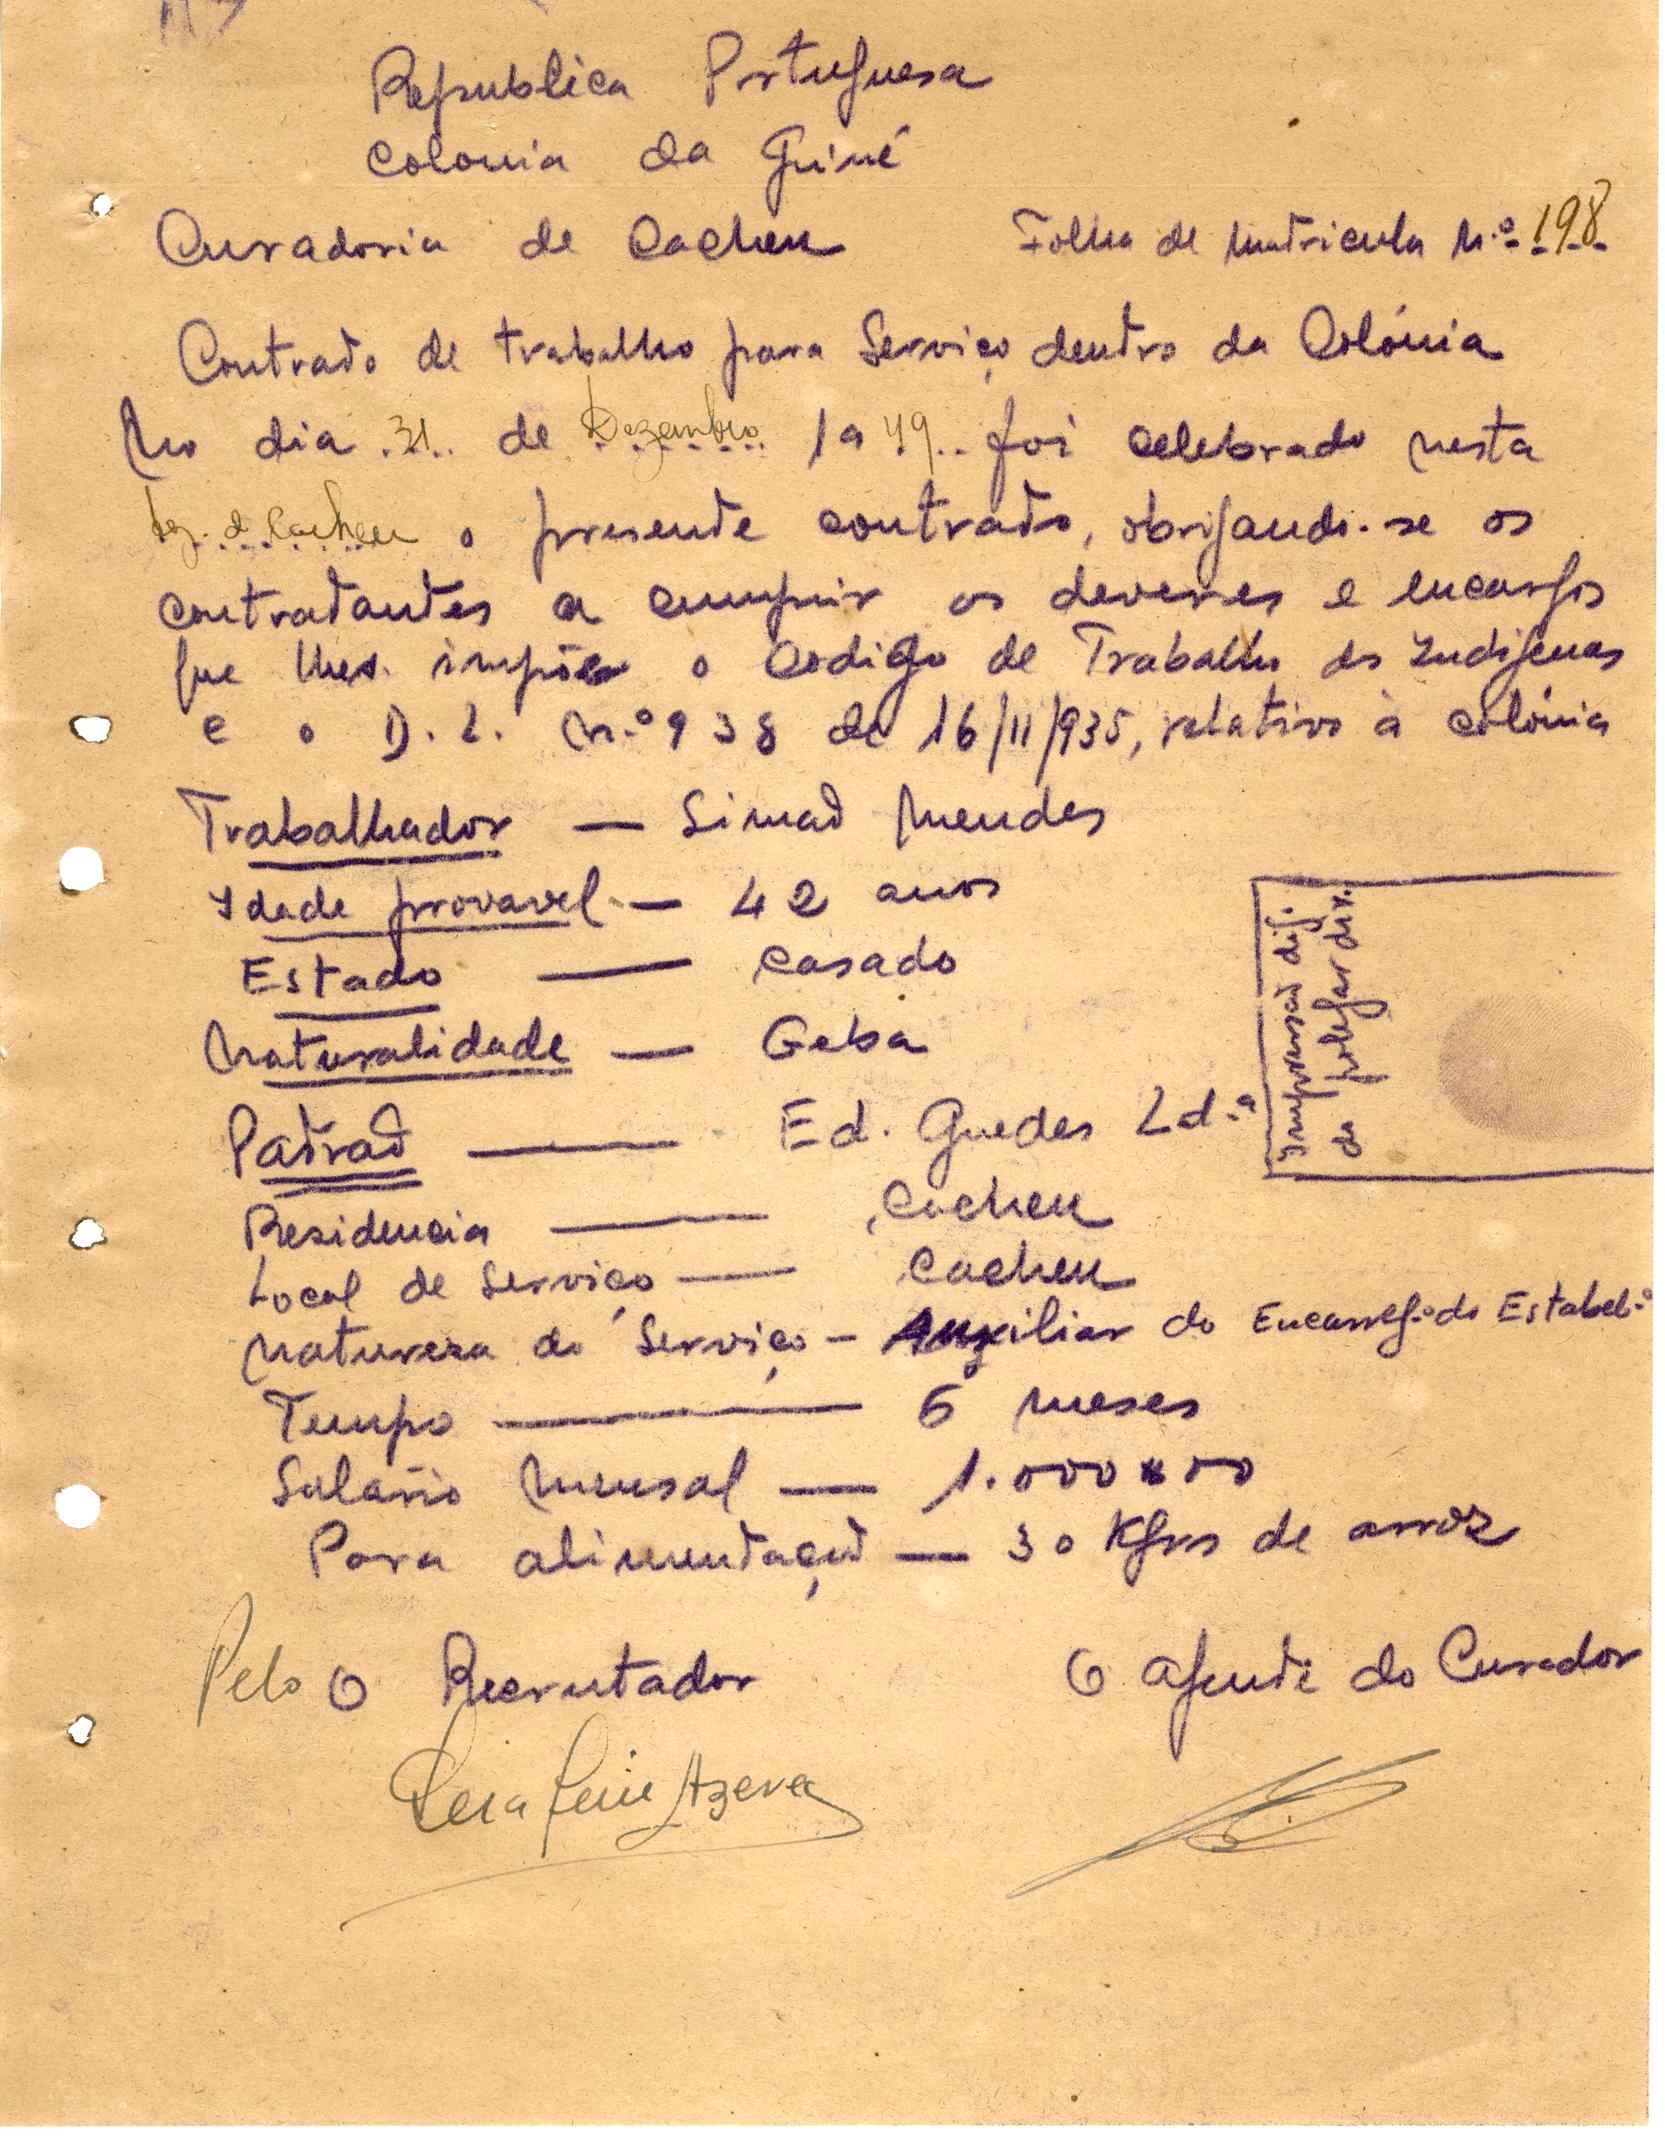 Republica Portuguesa
Colonia da Guiné
Curadoria de Cacheu Folha de Matricula N.º 198
Contrato de trabalho para Serviço dentro da Colónia
No dia 31 de Dezembro 1949 foi celebrado nesta
de Cacheu o presente contrato, obrigando-se os
contratantes a cumprir os deveres e encargos
que lhes impõe o Codigo de Trabalho dos Indigenas
e o D. L. n.º 938 de 16/11/935, relativo à colónia
Trabalhador — Simão Mendes
Idade provavel — 42 anos
Estado — Casado
Naturalidade — Geba
Patrão — Ed. Guedes Ld.ª
Residencia — Cacheu
Local de Serviço — Cacheu
Natureza do Serviço — Auxiliar do Encarreg.º do Estabel.º
Tempo — 6 meses
Salario Mensal — 1.000$00
Para alimentação — 30 Kgrs de arroz
Impressão dig.
do polegar dir.
Pelo O Recrutador O Agente do Curador